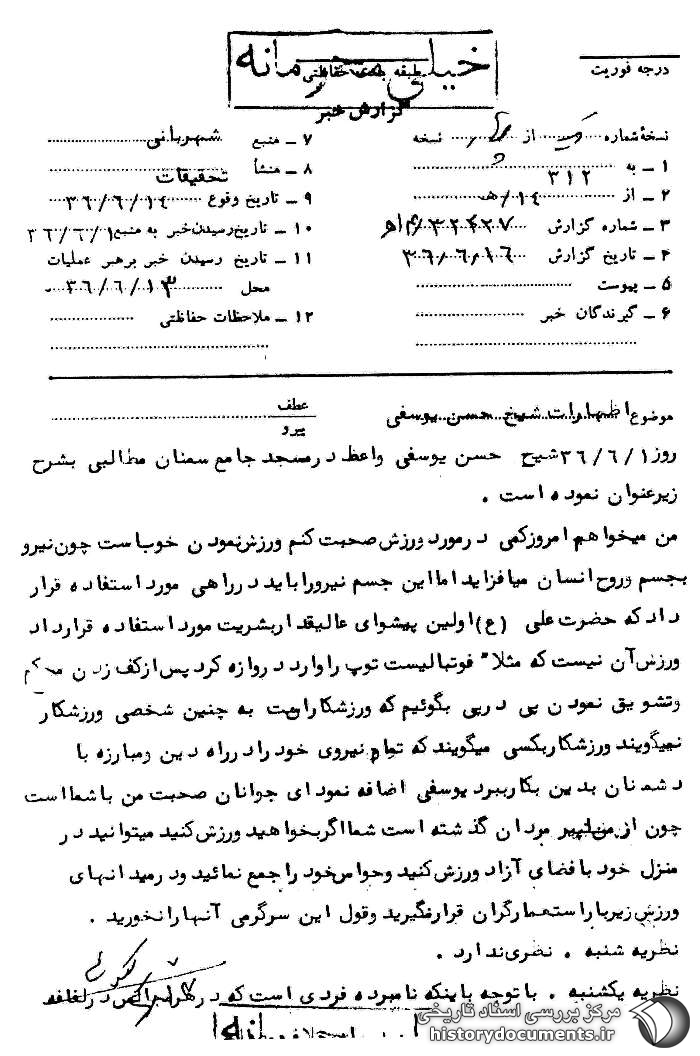 خیلی محرمانه
طبقه بندی حفاظتی
گزارش خبر
درجه فوریت
نسخهٔ شماره از نسخه
۱ ـ به ۳۱۲
۲ ـ از ۱۴/ه‍
۳ ـ شماره گزارش
۴ ـ تاریخ گزارش ۳۶/۶/۱۶
۵ ـ پیوست
۶ ـ گیرندگان خبر
۷ ـ منبع شهربانی
۸ ـ منشأ تحقیقات
۹ ـ تاریخ وقوع ۳۶/۶/۱۴
۱۰ ـ تاریخ رسیدن خبر به منبع ۳۶/۶/۱
۱۱ ـ تاریخ رسیدن خبر برهبر عملیات
محل ۳۶/۶/۱۳
۱۲ ـ ملاحظات حفاظتی
موضوع اظهارات شیخ حسن یوسفی
عطف
پیرو
روز ۳۶/۶/۱ شیخ حسن یوسفی واعظ در مسجد جامع سمنان مطالبی بشرح
زیر عنوان نموده است .
من میخواهم امروز کمی در مورد ورزش صحبت کنم ورزش نمودن خوب است چون نیرو
بجسم وروح انسان میافزاید اما این جسم نیرو را باید در راهی مورد استفاده قرار
داد که حضرت علی (ع) اولین پیشوای عالیقدار بشریت مورد استفاده قرار داد
ورزش آن نیست که مثلا" فوتبالیست توپ را وارد دروازه کرد پس از کف زدن محکم
وتشویق نمودن پی در پی بگوئیم که ورزشکار است به چنین شخصی ورزشکار
نمیگویند ورزشکار بکسی میگویند که تمام نیروی خود را در راه دین ومبارزه با
دشمنان بدین بکار ببرد یوسفی اضافه نمود ای جوانان صحبت من با شما است
چون از پیر مردان گذشته است شما اگر بخواهید ورزش کنید میتوانید در
منزل خود با فضای آزاد ورزش کنید وحواس خود را جمع نمائید ودر میدانهای
ورزش زیر با راستعمارگران قرار نگیرید وقول این سرگرمی آنها را نخورید .
نظریه شنبه . نظری ندارد .
نظریه یکشنبه . با توجه باینکه نامبرده فردی است که در
مرکز بررسی اسناد تاریخی
historydocuments.ir